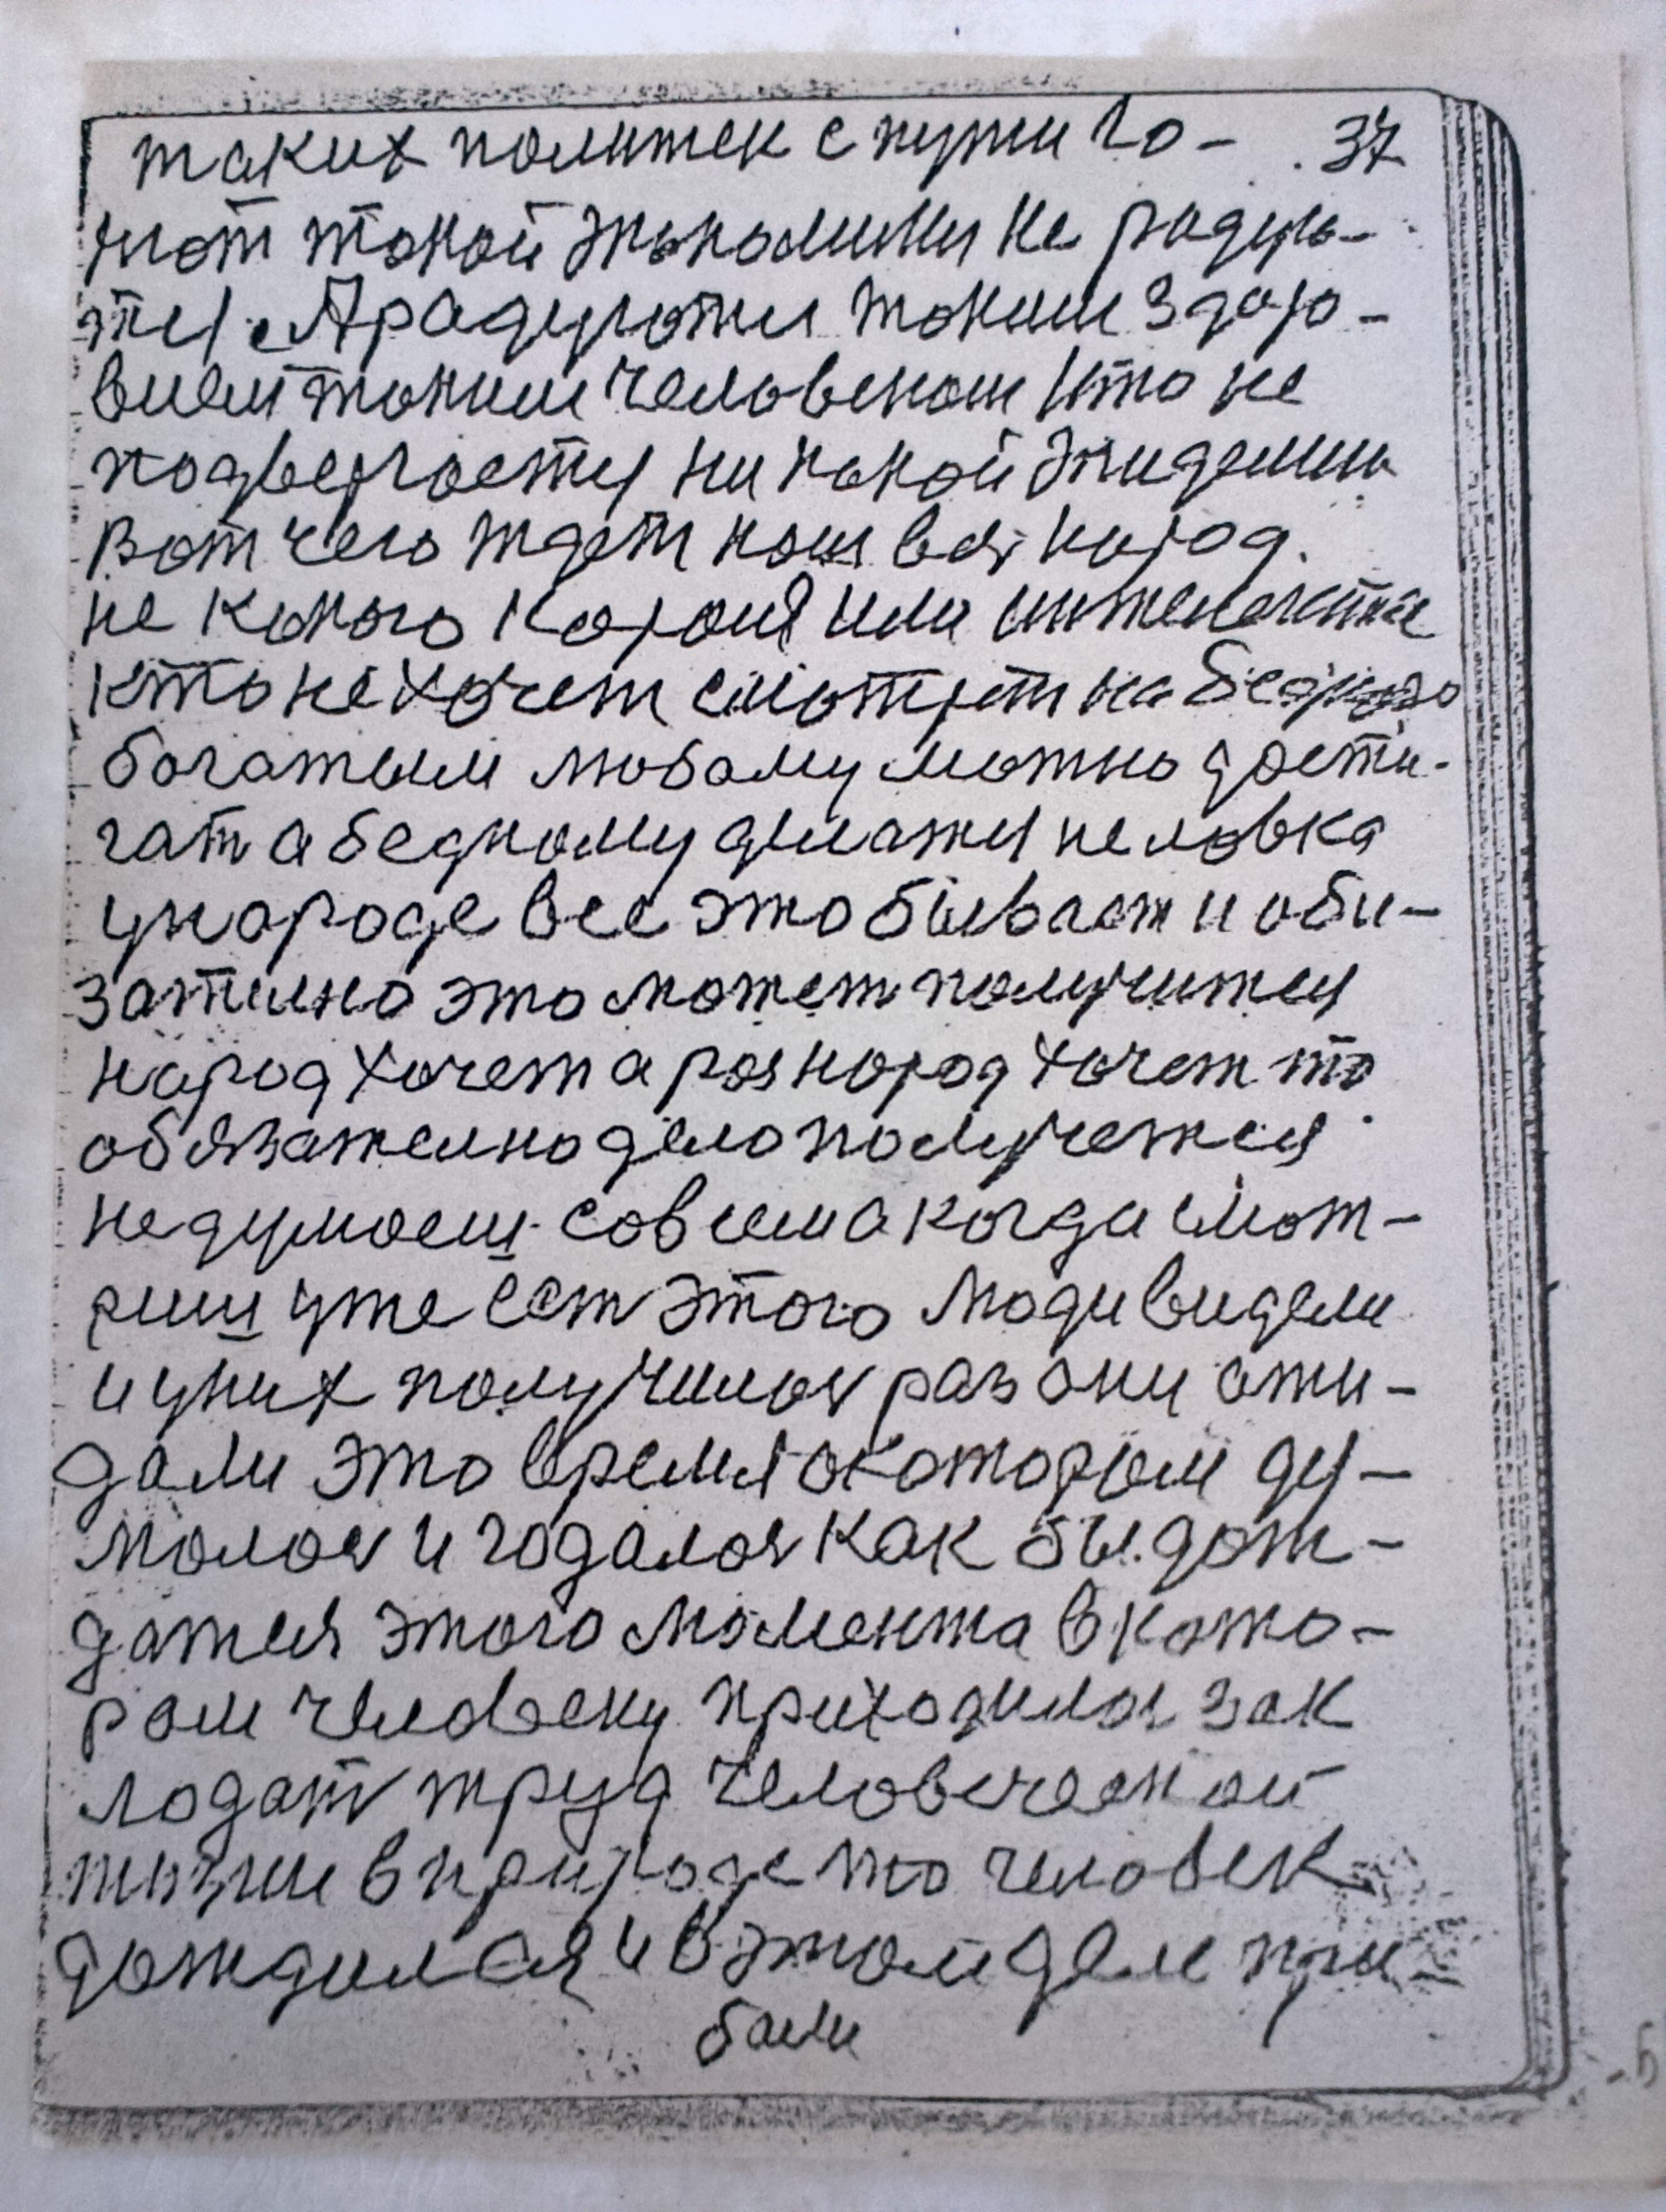 таких политек с пути го- 37
нют такой экономики не радую-
тся. А радуются таким здоро-
вием таким человеком кто не
подвергается ни какой эпидемии
Вот чего ждет наш вес народ.
не какого короля или
кто не хочет смотрет на
богатым любому можно дости-
гат а бедному дематся неловка
ународе все это бывает и оби-
зателно это может получится
народ хочет а раз народ хочет то
обязателно дело получется
не думаеш совсем а когда смот-
риш уже ест этого люди видели
и у них получилос раз они ожи-
дали это время о котором ду-
малос и годалос как бы дож-
датся этого момента в кото-
ром человеку приходилос зак
ладат труд человеческой
жизни в природе то человек
дождался и в этом деле при-
бали